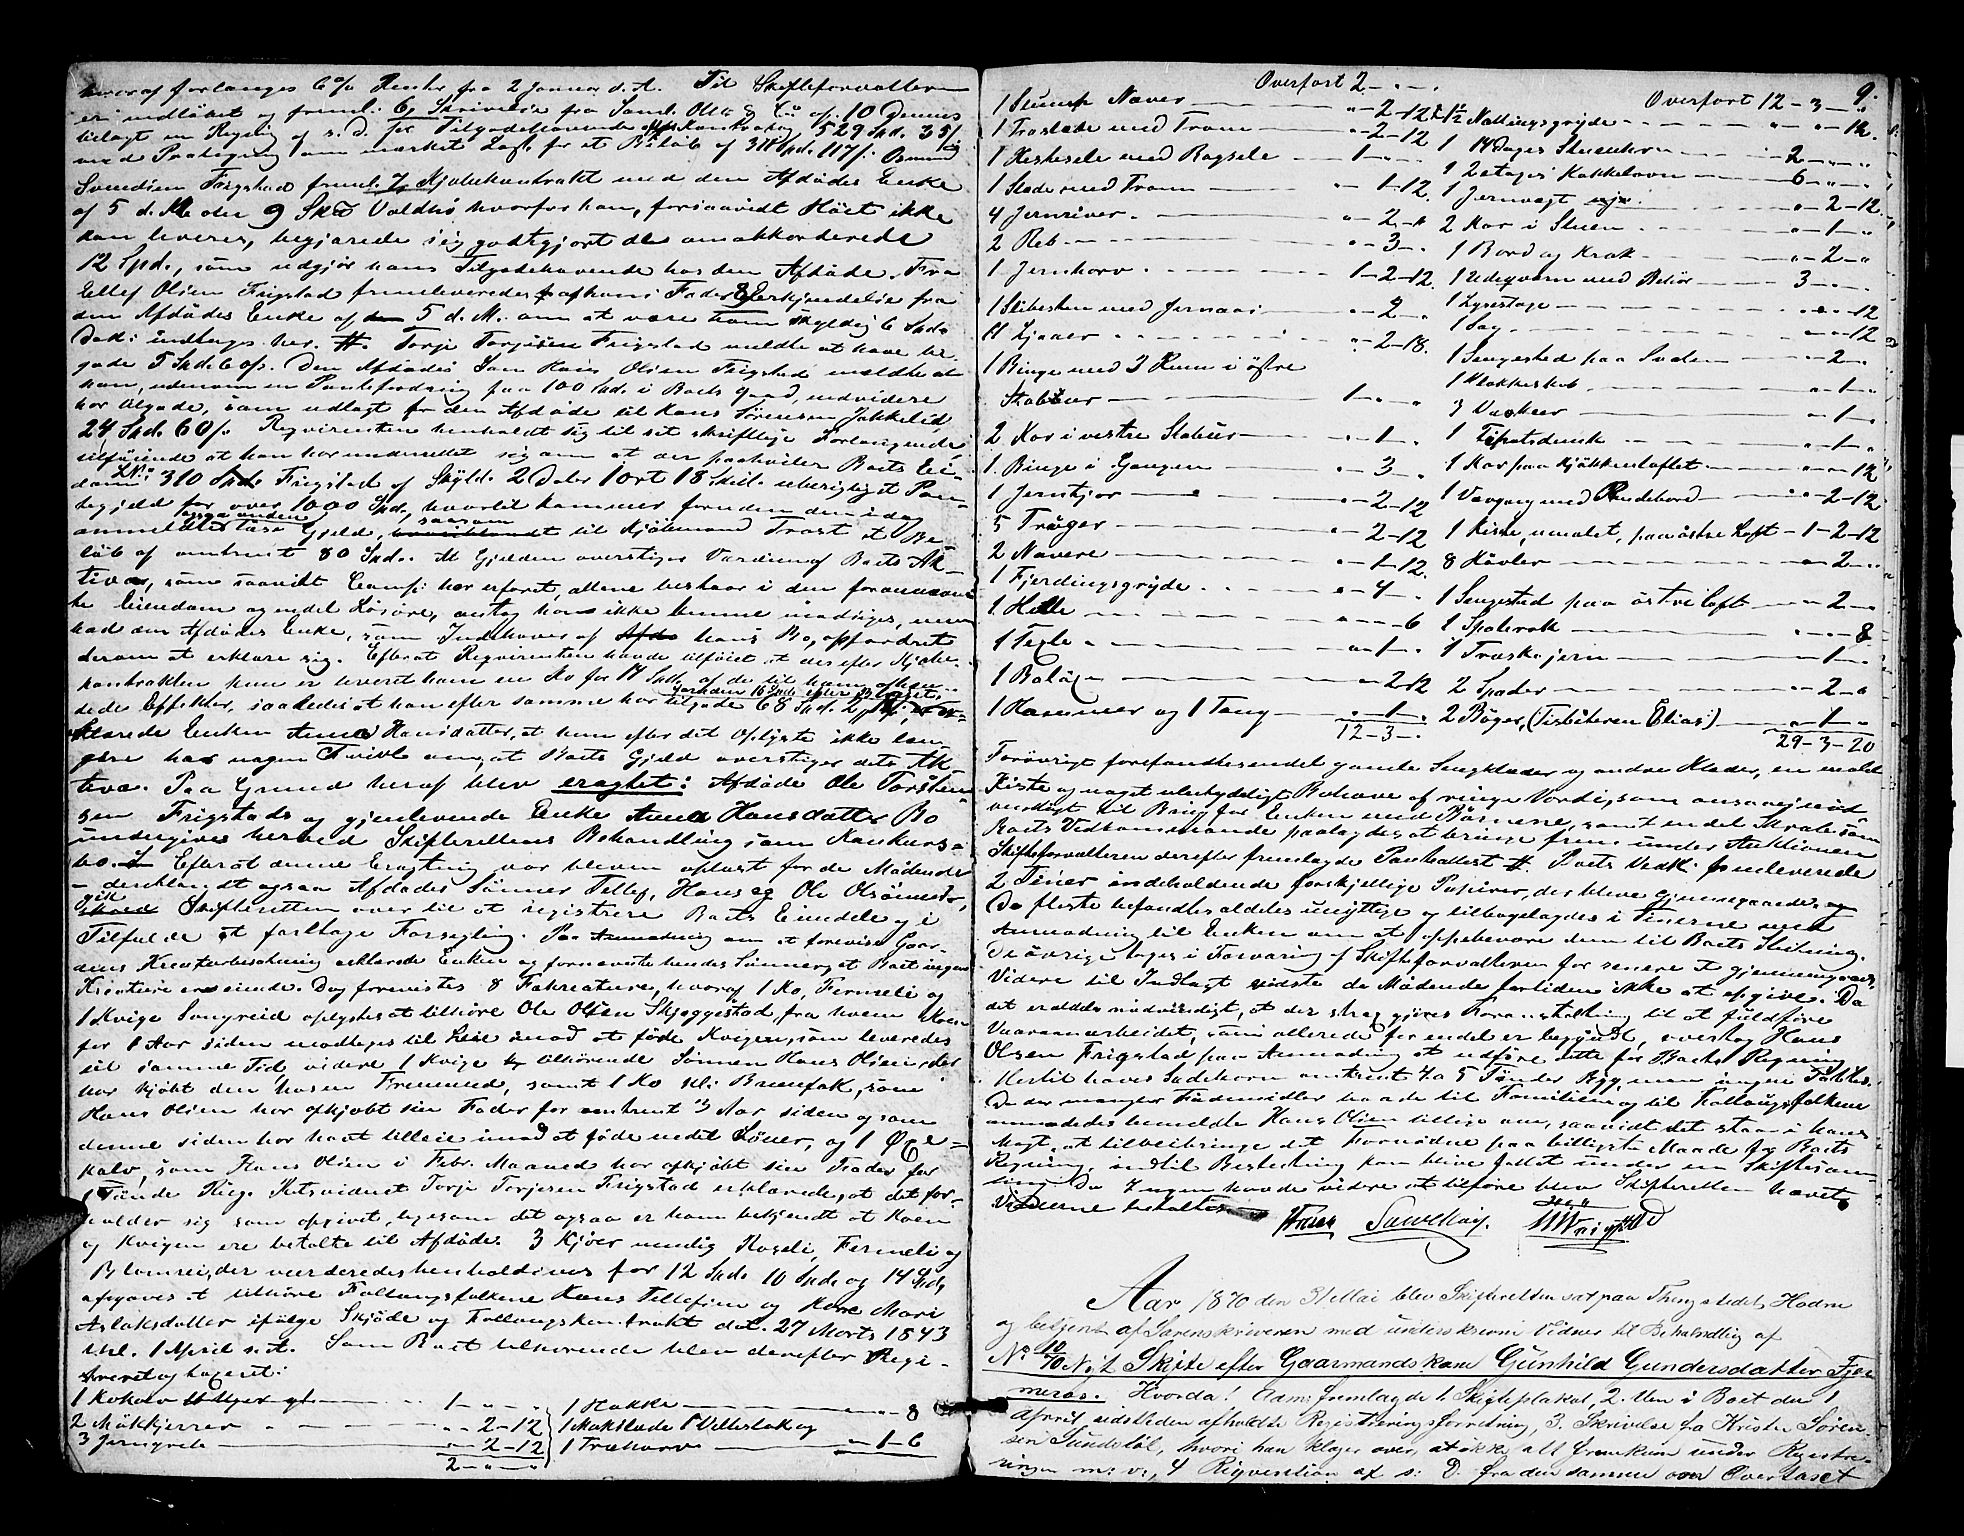 hvoraf forlanges 6% Renter fra 2 Januar d. A. Til Skifteforvalteren
er indløbet og freml: 6, Skrivelse fra Saml. Olsen & Co af 10 Dennes
bilagt en Regning af s. D. for Tilgodehavende 529 Spd. 35 s
med Paategning om mærket Løste for et Beløb af Spd. 117 s. Osmund
Svendsen Frigstad freml. 7, Kjøbekontrakt med den Afdødes Enke
af 5 d. M. over 9 Skd Voldhø, hvorfor han, forsaavidt Høet ikke
kan leveres, begjærede sig godtgjort de omakkorderede
12 Spd., som udgjør hans Tilgodehavende hos den Afdøde. Fra
Ellef Olsen Frigstad fremleveredes af hans Fader 8, Erkjendelse fra
den Afdødes Enke af 5 d. M. om at være ham skyldig 6 Spd.
Dok: indtages her. #. Torje Torjesen Frigstad meldte at have til-
gode 5 Spd. 60 s. Den Afdødes Søn Hans Olsen Frigstad meldte at
han, udenom en Pantefordring paa 100 Spd. i Boets Gaard, endvidere
har tilgode, som udlagt for den Afdøde til Hans Sørensen Jakkelid
24 Spd. 60 s. Reqvirenten henholdt sig til sit skriftlige Forlangende,
tilføiende at han har underrettet sig om at der paahviler Boets Ei-
dom LNo 310 Frigstad af Skyld 2 Daler 1 ort 18 Skill. uberigtiget Pan-
tegjeld for over 1000 Spd., hvortil kommer foruden den idag
anmeldte løse Gjeld, ogsaa anden saasom til Kjøbmand Trost et Be-
løb af omtrent 80 Spd. At Gjelden overstiger Værdien af Boets Ak-
tiva, som saavidt Comp: har erfaret, allene bestaar i den forannævn-
te Eiendom og endel Løsøre, antog han ikke kunne modsiges, men
bad den Afdødes Enke, som Indehaver af hans Bo, opfordret
derom at erklære sig. Efterat Reqvirenten havde tilføiet at der efter Kjøbe-
kontrakten kun er leveret ham en Ko for 17 Spd. af de til ham afhæn-
dede Effekter, saaledes at han efter samme har tilgode 68 Spd.
klærede Enken Anna Hansdatter, at hun efter det Oplyste ikke læn-
gere har nogen Tvivl om, at Boets Gjeld overstiger dets Ak-
tiva. Paa Grund heraf blev eragtet: Afdøde Ole Torstein-
sen Frigstads og gjenlevende Enke Anna Hansdatters Bo
undergives herved Skifterettens Behandling som Konkurs-
bo. Efterat denne Eragtning var bleven oplæst for de Mødende
– deriblandt ogsaa Afdødes Sønner Tellef, Hans og Ole Olsønner –,
gik Skifteretten over til at registrere Boets Eiendele og i
Tilfælde at foretage Forsegling. Paa Anmodning om at forevise Gaar-
dens Kreaturbesætning erklærede Enken og fornævnte hendes Sønner, at Boet ingen
Kreature er eiende. Dog forevistes 8 Fækreature, hvoraf 1 Ko, Fermeli og
1 Kvige Sangreid oplystes at tilhøre Ole Olsen Skjeggestad, fra hvem Koen
for 1 Aar siden modtoges til Leie imod at føde Kvigen, som leveredes
til samme Tid, videre 1 Kvige tilhørende Sønnen Hans Olsen, der
har kjøbt den hosen Fremmed, samt 1 Ko kl: Brunfak, som
Hans Olsen har afkjøbt sin Fader for omtrent 3 Aar siden og som
denne siden har havt tilleie imod at føde nedel Søuer, og 1 Oxe-
kalv, som Hans Olsen i Febr. Maaned har afkjøbt sin Fader for
1 Tønde Rug. Retsvidnet Torje Torjesen Frigstad erklærede, at det for-
holder sig som opgivet, ligesom det ogsaa er ham bekjendt at Koen
og Kvigen ere betalte til Afdøde. 3 Kjøer nemlig Rosli, Fermeli og
Blomrei, der værderedes henholdsvis for 12 Spd. 10 Spd. og 14 Spd,
opgaves at tilhøre Follaugsfolkene Hans Tellefsen og Kone Mari
Aslaksdatter ifølge Skjøde og Follaugskontrakt dat. 27 Marts 1843
thl. 1 April s. A. Som Boet tilhørende blev derefter Regi-
streret og taxeret:
1 Kokalv – 1 - „ - „
2 Møkkjerrer – „ - 2 - 12
3 Jerngrebe – „ - 2 - 12
2 - „ - „
1 Hakke – „ - „ - 8
1 Møkslæde 1 Vælteslæde og
1 Trækarre – „ - 1 - 6
9.
Overført 2 - „ - „
1 Stump Næver – „ - 2 - 12
1 Træslæde med Tram – „ - 2 - 12
1 Hestesele med Bogsele – 1 - „ - „
1 Slæde med Tram – „ - 1 - 12.
4 Jernriver – „ - 2 - „
2 Reb – „ - 3 - „
1 Jernharv – 1 - 2 - 12.
1 Slibesten med Jernaas – „ - 2 - „
4 Ljaaer – „ - 2 - 18.
1 Binge med 3 Rum i østre
Stabbur – 1 - „ - „
2 Kar i vestre Stabur – „ - 1 - „
1 Binge i Gangen – „ - 3 - „
1 Jernskjor – „ - 2 - 12
5 Trøger – „ - 2 - 12
2 Navere – „ - 1 - 12.
1 Fjerdingsgryde – „ - 4 - „
1 Helle – „ - „ - 6
1 Texle – „ - 1 - „
1 Boløx – „ - 2 - 12
1 Hammer og 1 Tang – „ - 1 - „
12 - 3 - „
Overført 12 - 3 - „
1 ½ Nattingsgryde – „ - „ - 12.
1 14 Dages Stueuhr – 2 - „ - „
1 2 etages Kakkelovn – 6 - „ - „
1 Jernvægt – „ - 2 - 12.
2 Kar i Stuen – „ - 1 - „
1 Bord og Krak – „ - 2 - „
1 Udeqværn med Behør – 3 - „ - „
1 Lysestage – „ - „ - 12
1 Sag – „ - „ - 12
1 Sengested paa Svalen – „ - 2 - „
1 Klokkeskab – „ - 1 - „
3 Vaskeer – „ - 1 - „
1 Tipotsdunk – „ - 1 - „
1 Kar paa Kjøkkenloftet – „ - „ - 12
1 Vævgang med Rendebord – „ - 2 - 12
1 Kiste, umalet, paa østre Loft – 1 - 2 - 12
8 Høvler – „ - 2 - „
1 Sengested paa østre Loft – „ - 2 - „
1 Spolerok – „ - „ - 8
1 Træskjern – „ - 1 - „
2 Spader – „ - 2 - „
2 Bøger, (Tisbiteren Elias) – „ - 1 - „
29 - 3 - 20
Forøvrigt forefandtes endel gamle Sengklæder og andre Klæder, en malet
Kiste og noget ubetydeligt Bohave af ringe Værdi, som ansaaes nød-
vendigt til Brug for Enken med Børnene, samt endel Skrab, som
Boets Vedkommende paalagdes at bringe frem under Auktionen
Skifteforvalteren derefter fremlagde Panteattest #. Boets Vedk. fremleverede
2 Tiner indeholdende forskjellige Papirer, der bleve gjennemgaaede,
De fleste befandtes aldeles unyttige og tilbagelagdes i Tinerne med
Anmodning til Enken om at opbevare dem til Boets Slutning.
De øvrige toges i Forvaring af Skifteforvalteren for senere at gjennemgaaes.
Videre til Indtægt vidste de Mødende fortiden ikke at opgive. Da
det ansaaes nødvendigt, at der strax gjøres Foranstaltning til at fuldføre
Vaaraanarbeidet, som allerede for endel er begyndt, overtog Hans
Olsen Frigstad paa Anmodning at udføre dette for Boets Regning
Hertil haves Sædekorn omtrent 4 a 5 Tønder Byg, men ingen Poteter.
Da der mangler Fødemidler baade til Familien og til Follaugsfolkene
anmodedes bemeldte Hans Olsen tillige om, saavidt det staar i hans
Magt, at tilveiebringe det Fornødne paa billigste Maade for Boets
Regning, indtil Beslutning kan blive fattet under en Skiftesam-
ling. Da Ingen havde videre at tilføre blev Skifteretten hævet.
Vidderne betaltes
Aar 1870 den 31 Mai blev Skifteretten sat paa Thingstedet Hodne
og betjent af Sorenskriveren med underskrevne Vidner til Behandling af
No 10/70 Nyt Skifte efter Gaarmandskone Gunhild Gundersdatter Fjer-
meros. Hvorda! Adm: fremlagde 1. Skifteplakat, 2. Den i Boet den 1
April sidstleden afholdte Registreringsforretning, 3. Skrivelse fra Krister Søren-
sen Sundstøl, hvori han klager over, at ikke alt fremkom under Registre-
ringen m: v:, 4 Reqvisition af s: D. fra den samme om Overtaxt